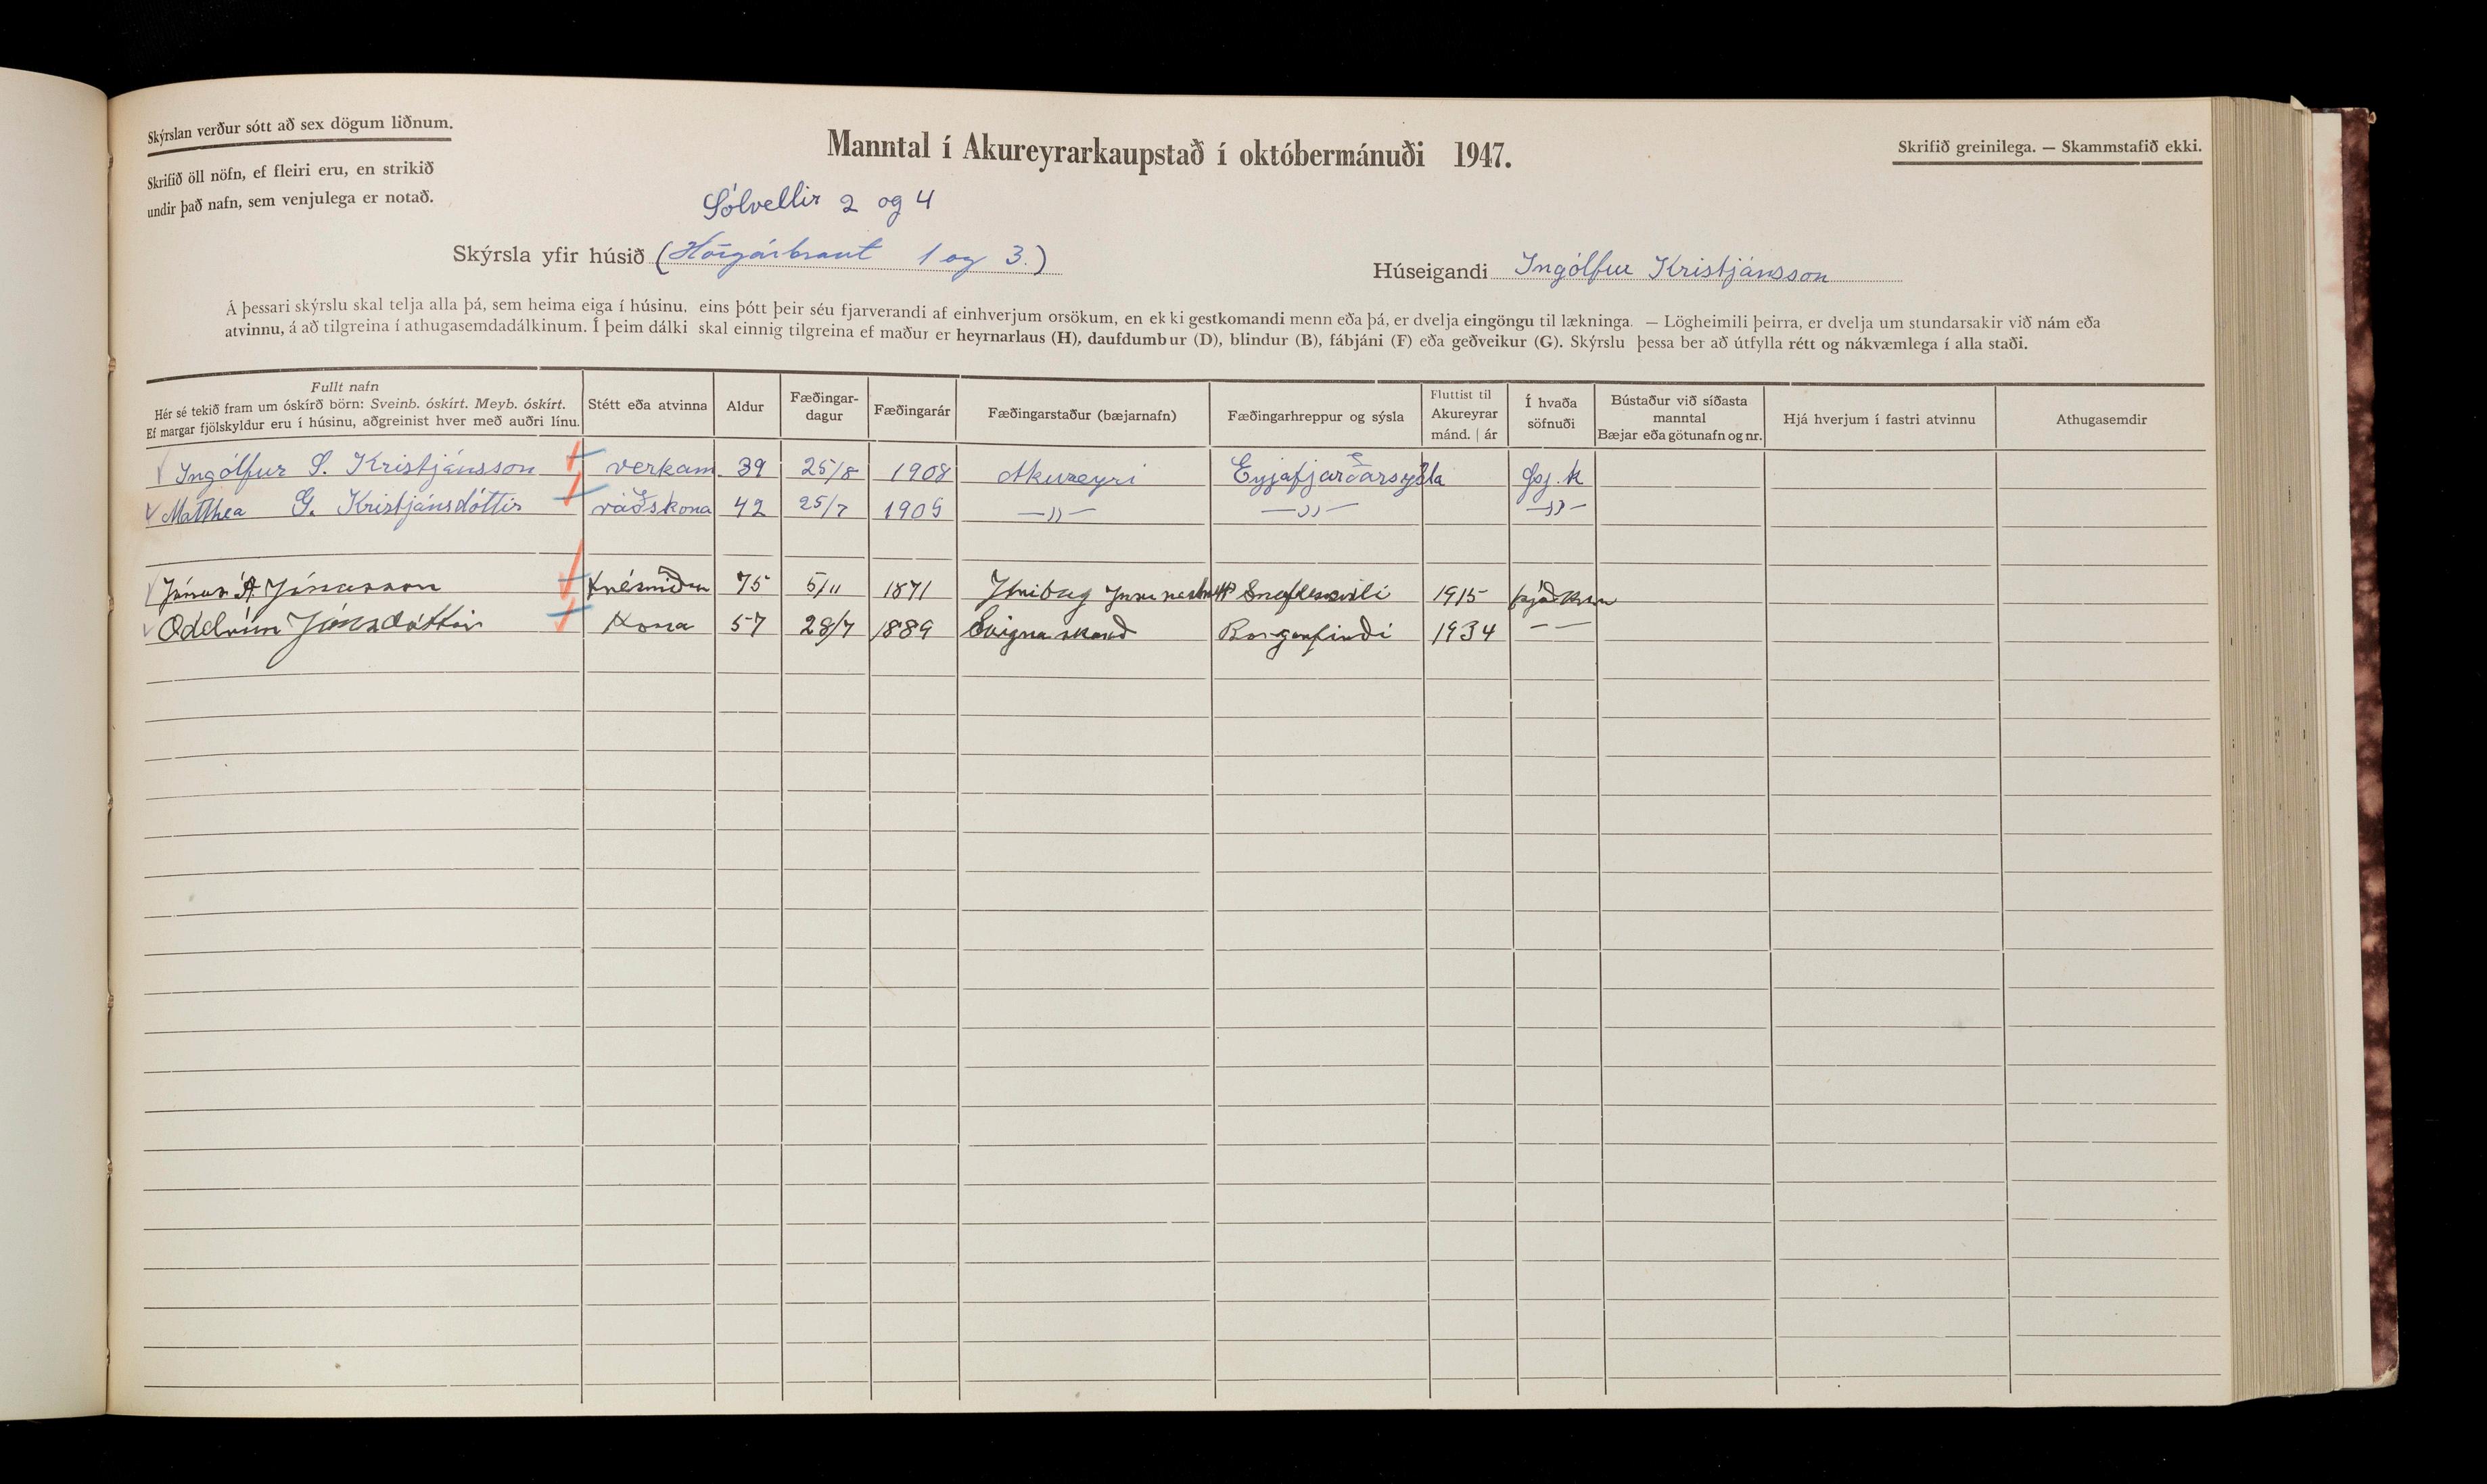 Skýrslan verður sótt að sex dögum liðnum.
Skrifið öll nöfn, ef fleiri eru, en strikið
undir það nafn, sem venjulega er notað.
Manntal í Akureyrarkaupstað í októbermánuði 1947.
Skrifið greinilega. — Skammstafið ekki.
Sólvellir 2 og 4
Skýrsla yfir húsið (Hörgárbraut 1 og 3.)
Húseigandi Ingólfur Kristjánsson
Á þessari skýrslu skal telja alla þá, sem heima eiga í húsinu, eins þótt þeir séu fjarverandi af einhverjum orsökum, en ekki gestkomandi menn eða þá, er dvelja eingöngu til lækninga. — Lögheimili þeirra, er dvelja um stundarsakir við nám eða
atvinnu, á að tilgreina í athugasemdadálkinum. Í þeim dálki skal einnig tilgreina ef maður er heyrnarlaus (H), daufdumbur (D), blindur (B), fábjáni (F) eða geðveikur (G). Skýrslu þessa ber að útfylla rétt og nákvæmlega í alla staði.
Fullt nafn
Hér sé tekið fram um óskírð börn: Sveinb. óskírt. Meyb. óskírt.
Ef margar fjölskyldur eru í húsinu, aðgreinist hver með auðri línu.
Stétt eða atvinna
Aldur
Fæðingar-
dagur
Fæðingarár
Fæðingarstaður (bæjarnafn)
Fæðingarhreppur og sýsla
Fluttist til
Akureyrar
mánd. | ár
Í hvaða
söfnuði
Bústaður við síðasta
manntal
Bæjar eða götunafn og nr.
Hjá hverjum í fastri atvinnu
Athugasemdir
Ingólfur S. Kristjánsson verkam. 39 25/8 1908 Akureyri Eyjafjarðarsýsla þj.k
Matthea G. Kristjánsdóttir ráðskona 42 25/7 1905 —)) — —)) — —)) —
Jónas A Jónasson trésmiður 75 5/11 1871 1915 þjóðkir
Jónsdóttir Kona 57 28/7 1889 Svignaskarð Borgarfirði 1934 — —